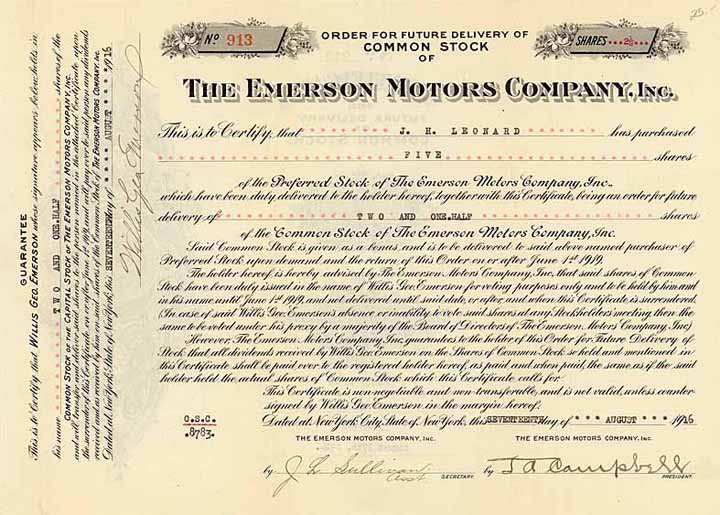 25.-
No 913
ORDER FOR FUTURE DELIVERY OF
COMMON STOCK
OF
SHARES ... 2½ ...
THE EMERSON MOTORS COMPANY, INC.
This is to Certify, that J. H. LEONARD has purchased
FIVE shares
of the Preferred Stock of The Emerson Motors Company, Inc.,
which have been duly delivered to the holder hereof, together with this Certificate, being an order for future
delivery of TWO AND ONE.HALF shares
of the Common Stock of The Emerson Motors Company, Inc.
Said Common Stock is given as a bonus, and is to be delivered to said above named purchaser of
Preferred Stock upon demand and the return of this Order on or after June 1st 1919.
The holder hereof is hereby advised by The Emerson Motors Company, Inc., that said shares of Common
Stock have been duly issued in the name of Willis Geo. Emerson for voting purposes only and to be held by him and
in his name until June 1st 1919, and not delivered until said date, or after, and when this Certificate is surrendered.
(In case of said Willis Geo. Emerson's absence or inability to vote said shares at any Stockholders meeting, then the
same to be voted under his proxy by a majority of the Board of Directors of The Emerson Motors Company, Inc.)
However, The Emerson Motors Company, Inc., guarantees to the holder of this Order for Future Delivery of
Stock that all dividends received by Willis Geo. Emerson on the Shares of Common Stock so held and mentioned in
this Certificate shall be paid over to the registered holder hereof, as paid and when paid, the same as if the said
holder held the actual shares of Common Stock which this Certificate calls for.
This Certificate is non-negotiable and non-transferable, and is not valid, unless counter-
signed by Willis Geo. Emerson in the margin hereof.
Dated at New York City, State of New York, this SEVENTEENTH day of AUGUST 1916
C.S.C.
.8783.
THE EMERSON MOTORS COMPANY, INC.
THE EMERSON MOTORS COMPANY, INC.
by J L Sullivan
Asst SECRETARY.
by T A Campbell
PRESIDENT.
GUARANTEE
This is to Certify that WILLIS GEO. EMERSON whose signature appears below, holds in
his name TWO AND ONE.HALF shares of the
COMMON STOCK OF THE CAPITAL STOCK OF THE EMERSON MOTORS COMPANY, INC.
and will transfer and deliver said shares to the person named in the attached Certificate upon
the surrender of this Certificate, on or after June 1st 1919, and will pay over to said person any dividends
received and as received by him on said shares of the Common Stock of THE EMERSON MOTORS COMPANY, INC.
Dated at New York, State of New York, this SEVENTEENTH day of AUGUST 1916
Willis Geo. Emerson